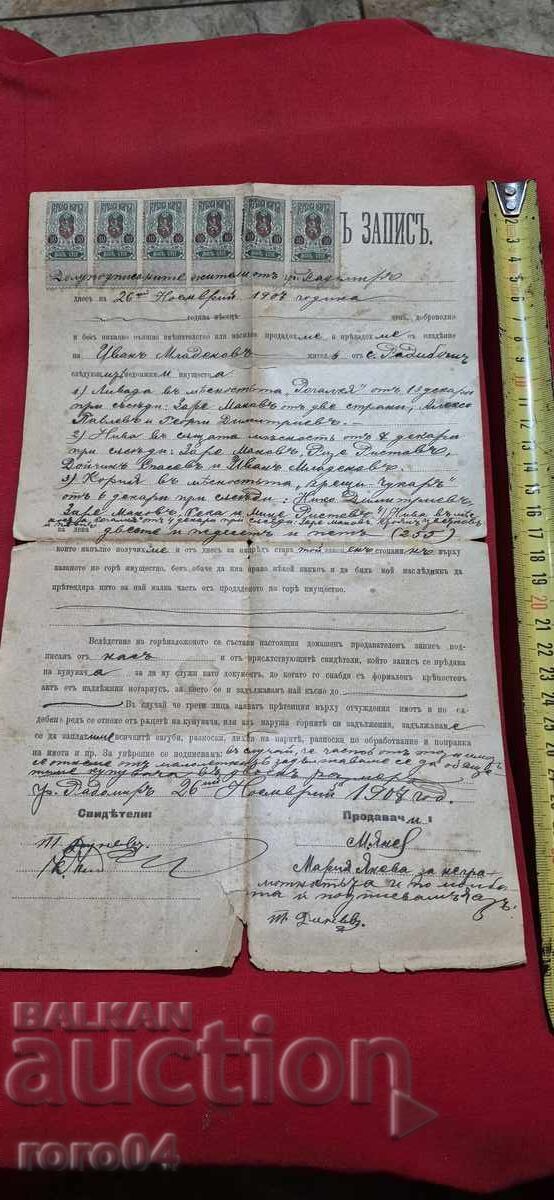 Ъ ЗАПИСЪ.
10 10 10 10 10 10 10 10 10 10 10 10
Долуподписаните жители отъ гр. Радомиръ
днесъ на 26ий Ноемврий 1907 година
година месецъ день, доброволно
и безъ никакво външно насилие продадохме и предадохме съ владение
на Иванъ Младеновъ жителъ отъ с. Радибошъ
следующи недвижими имущества
1) Ливада въ местностьта „Рогалкя" отъ 13 декари
при съседи: Заре Маковъ отъ две страни, Алексо
Павлевъ и Георги Димитриевъ.
2) Нива въ същата местность отъ 4 декари
при съседи: Заре Маковъ, Ристовъ,
Дойчинъ Спасовъ и Иванъ Младеновъ.
3) Кория въ местностьта „Прещи-чукаръ"
отъ 6 декари при съседи: Нико Димитриевъ
Заре Маковъ, и Мице Ристовъ 4) Нива въ
отъ 4 декари при съседи Заре Маковъ
за цена двесте и петдесетъ и петь (255)
които напълно получихме и отъ днесъ за напредъ става той законенъ стопанинъ върху
казаното по горе имущество, безъ обаче да има право некой нашъ и да билъ мой наследникъ да
претендира нито за най малка часть отъ продаденото по горе имущество.
Вследствие на гореизложеното се състави настоящия домашенъ продавателенъ записъ под-
писанъ отъ насъ и отъ присътствующите свидетели, който записъ се предава
на купувача за да му служи като документъ, до когато го снабди съ формаленъ крепостенъ
актъ отъ надлежни нотариусъ, за което се и задължавамъ най късно до
Въ случай че трети лица адаватъ претенции върху отчуждения имотъ и по съ-
дебенъ редъ се отнеме отъ ръцете на купувача, или азъ наруша горните си задължения, задължаваме
се да заплатиме всичките загуби, разноски, лихва на парите, разноски, по обработвание и поправка
на имота и пр. За уверение се подписвамъ: Въ случай, че частъ отъ тоя имотъ
се отнеме отъ малолетни задължаваме се да обезще-
тиме купувача въ двоенъ размеръ
гр. Радомиръ 26ий Ноемврий 1907 год.
Свидетели: Продавачи:
Т. Дуневъ М. Янев
Мария Янева за негра-
мотностьта и по молба-
та ѝ подписвамъ азъ
Т. Дуневъ.
1 2 3 4 5 6 7 8 9 10 11 12 13 14 15 16 17 18 19 20 21 22 23 24 25 26 27 28 29 30 31 32 33 34
BALKAN
auction
roro04